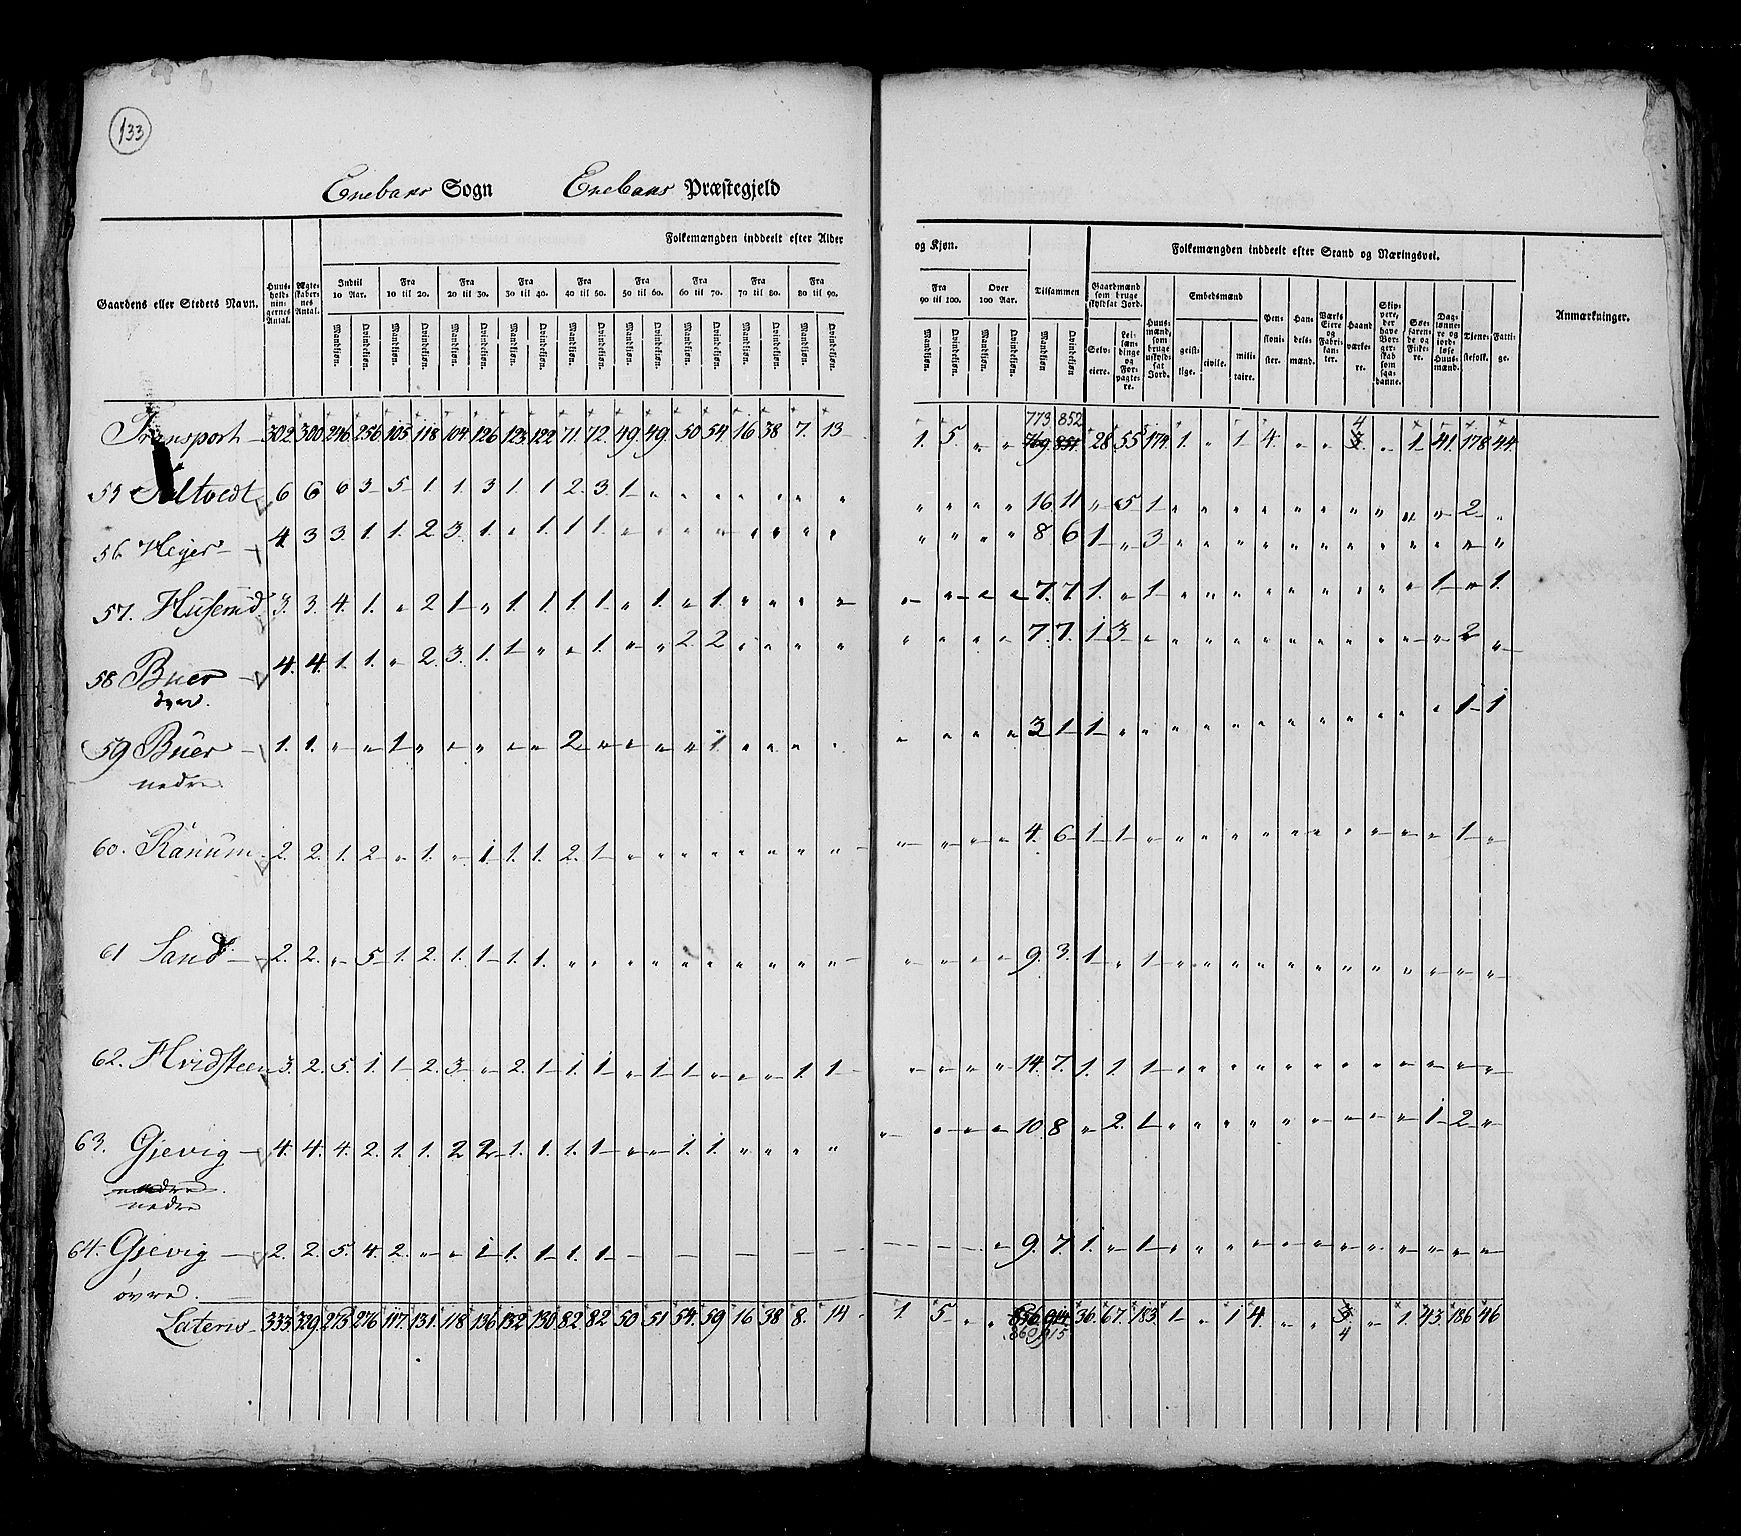 133
Enebaks Sogn Enebaks Præstegjeld
Gaardens eller Stedets Navn.
Huusholdningernes Antal.
Ægteskabernes Antal.
Folkemængden inddeelt efter Alder og Kjøn.
Indtil 10 Aar. Fra 10 til 20. Fra 20 til 30. Fra 30 til 40. Fra 40 til 50. Fra 50 til 60. Fra 60 til 70. Fra 70 til 80. Fra 80 til 90. Fra 90 til 100. Over 100 Aar. Tilsammen
Mandkjøn. Qvindekjøn. Mandkjøn. Qvindekjøn. Mandkjøn. Qvindekjøn. Mandkjøn. Qvindekjøn. Mandkjøn. Qvindekjøn. Mandkjøn. Qvindekjøn. Mandkjøn. Qvindekjøn. Mandkjøn. Qvindekjøn. Mandkjøn. Qvindekjøn. Mandkjøn. Qvindekjøn. Mandkjøn. Qvindekjøn. Mandkjøn Qvindekjøn.
Folkemængden inddeelt efter Stand og Næringsvei.
Gaardmænd som bruge skyldsat Jord.
Selveiere. Leilændinge og Forpagtere.
Huusmænd, som bruge uskyldsat Jord.
Embedsmænd
geistlige. civile. militaire.
Pensionister.
Handelsmænd.
Værkseiere og Fabrikanter.
Haandværkere.
Skippere, der have Borgerskab som saadanne.
Søefarende og Fiskere.
Daglønnere og jordløse Huusmænd.
Tjenestefolk.
Fattige.
Anmærkninger.
773 852 4
Transport 302 300 246 256 105 118 104 126 123 122 71 72 49 49 50 54 16 38 7 13 1 5 " " 769 851 28 55 174 1 " 1 4 " " 3 " 1 41 178 44
55 6 6 6 3 5 1 1 3 1 1 2 3 1 " " " " " " " " " " " 16 11 " 5 1 " " " " " " " " " " 2 "
56 Heyer 4 3 3 1 1 2 3 1 " 1 1 1 " " " " " " " " " " " " 8 6 1 " 3 " " " " " " " " " " " "
57. Huserud 3 3 4 1 " 2 1 " 1 1 1 1 " 1 " 1 " " " " " " " " 7 7 1 " 1 " " " " " " " " " 1 " 1
58 Buer 4 4 1 1 " 2 3 1 1 " " 1 " " 2 2 " " " " " " " " 7 7 1 3 " " " " " " " " " " " 2 "
59 Buer 1 1 " " 1 " " " " " 2 " " " " 1 " " " " " " " " 3 1 1 " " " " " " " " " " " " 1 1
nedre
60. Ranum 2 2 1 2 " 1 " 1 1 1 2 1 " " " " " " " " " " " " 4 6 1 1 " " " " " " " " " " " 1 "
61 Sand 2 2 " 5 1 2 1 1 1 1 " " " " " " " " " " " " " " 9 3 1 " 1 " " " " " " " " " " " "
62. Hvidsteen 3 2 5 1 1 2 3 " 2 1 1 1 " 1 1 " " " 1 1 " " " " 14 7 1 1 1 " " " " " " " " " " " "
63. Gjevig 4 4 4 2 1 1 2 2 1 1 1 1 " " 1 1 " " " " " " " " 10 8 " 2 1 " " " " " " " " " 1 2 "
nedre
64. Gjevig 2 2 5 4 2 " " 1 1 1 1 1 — — — — — — " 9 7 1 " 1 " " " " " " " " " " " "
øvre.
Lateris 333 329 273 276 117 131 118 136 132 130 82 82 50 51 54 59 16 38 8 14 1 5 " " 856 914 36 67 183 1 " 1 4 " " 3 " 1 43 186 46
860 915 4